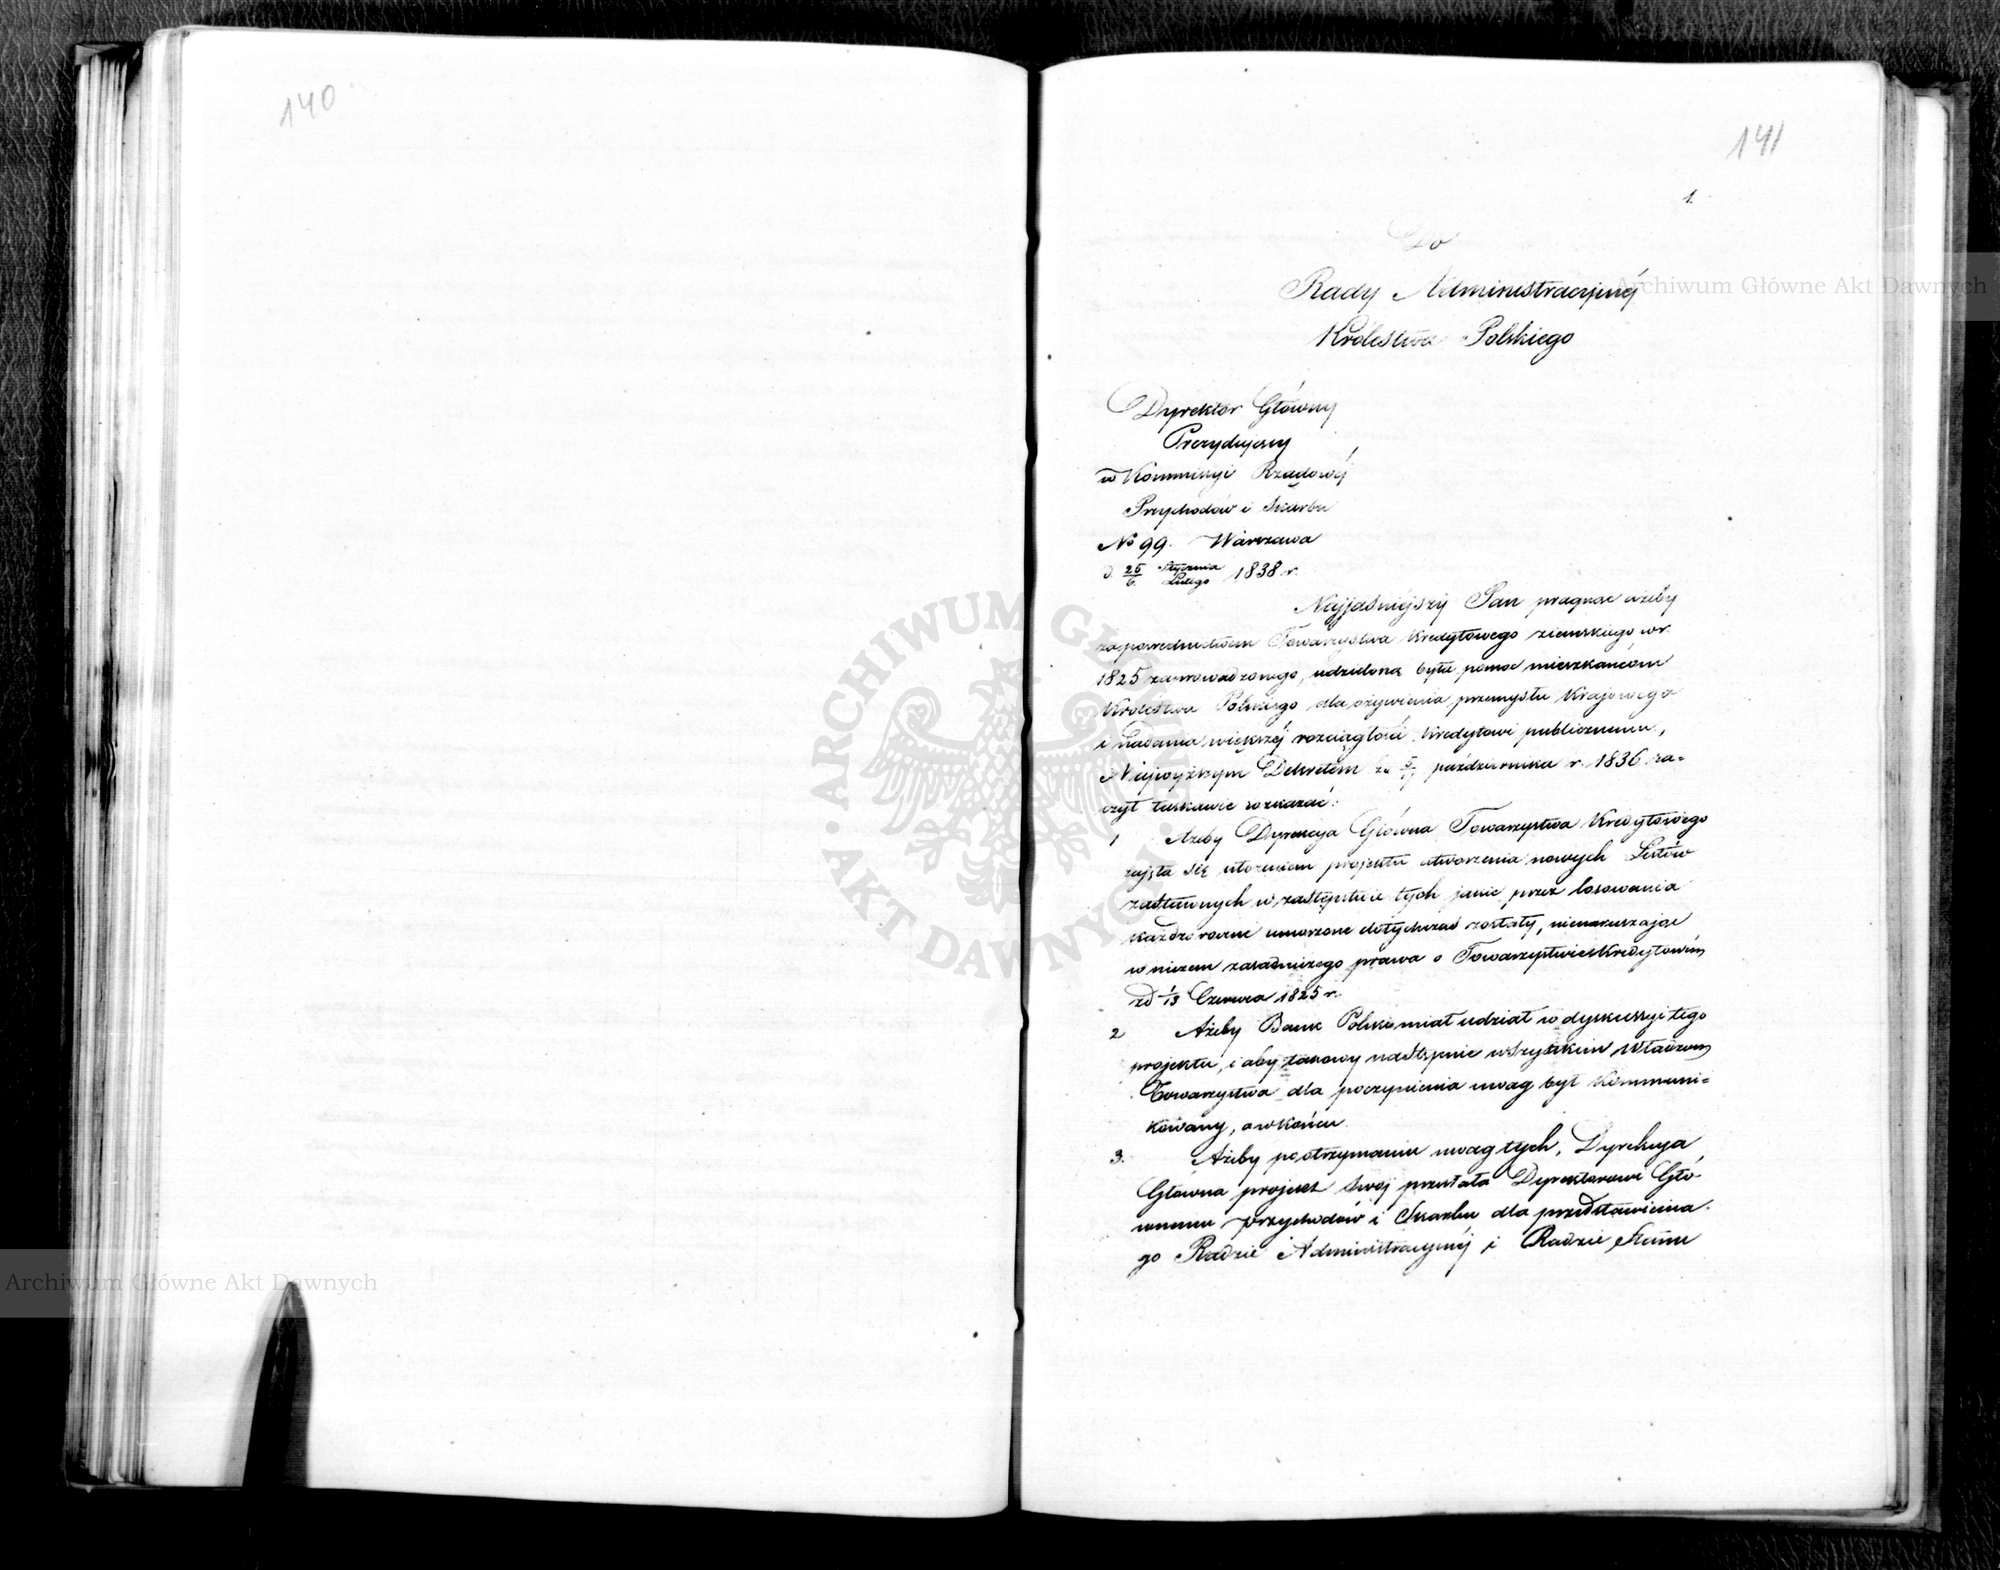 140
141
1.
Do
Rady Administracyjnéj
Królestwa Polskiego
Dyrektor Główny
Prezydujący
w Kommissyi Rządowéj
Przychodów i Skarbu
No 99. Warszawa
d. 25/6. Stycznia/Lutego 1838 r.
Najjaśniejszy Pan pragnąc ażeby
za pośrednictwem Towarzystwa Kredytowego ziemskiego w r.
1825 zaprowadzonego, udzieloną była pomoc mieszkańcom
Królestwa Polskiego dla ożywienia przemysłu Krajowego
i nadania większéj rozciągłości Kredytowi publicznemu,
Najwyższym Dekretem października r. 1836 ra-
czył łaskawie rozkazać:
1 Ażeby Dyrekcja Główna Towarzystwa Kredytowego
zajęła się ułożeniem projektu utworzenia nowych Listów
zastawnych w zastępstwie tych jakie przez losowania
każdo roczne umorzone dotychczas zostały, nienaruszając
w niczem zasadniczego prawa o Towarzystwie Kredytowém
z d 1/13 Czerwca 1825 r.
2 Ażeby Bank Polski miał udział w dyskussyi tego
projektu, i aby takowy następnie wszystkim Władzom
Towarzystwa dla poczynienia uwag był Kommuni-
kowany, a wkońcu
3. Ażeby po otrzymaniu uwag tych, Dyrekcja
Główna projekt swój przesłała Dyrektorowi Głó-
wnemu przychodów i Skarbu dla przedstawienia
go Radzie Administracyjnéj i Radzie Stanu
Archiwum Główne Akt Dawnych
ARCHIWUM GŁÓWNE
AKT DAWNYCH
Archiwum Główne Akt Dawnych